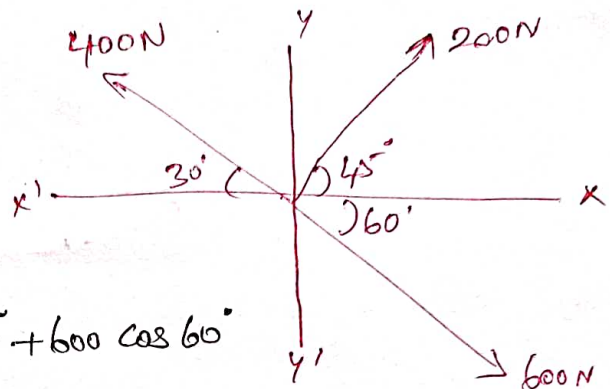 Y
400N
200N
30°
45°
X'
X
60°
+600 cos 60°
Y'
600N